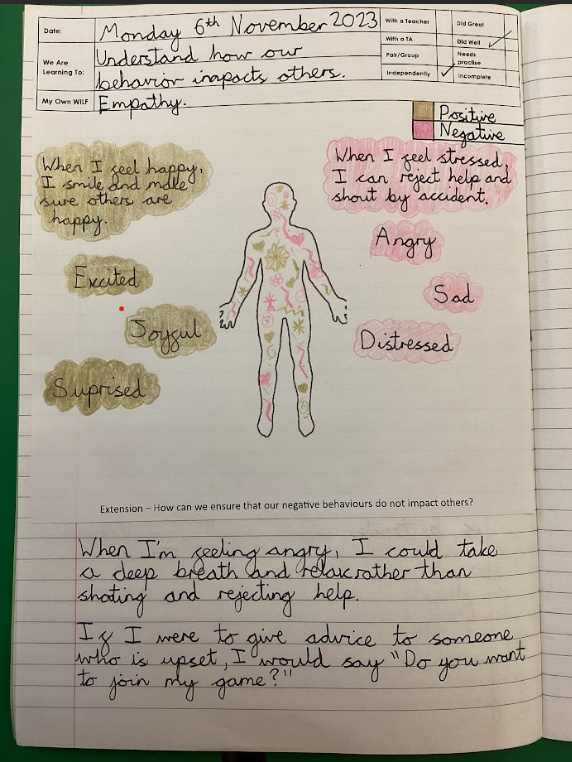 Date:
Monday 6th November 2023
We Are
Learning To:
Understand how our
behavior inapacts others.
My Own WILF
Empathy.
With a Teacher
Did Great
With a TA
Did Well
Pair/Group
Needs
practise
Independently
Incomplete
Positive
Negative
When I feel happy,
I smile and make
sure others are
happy.
Excited
Joyful
Suprised
When I feel stressed
I can reject help and
shout by accident.
Angry
Sad
Distressed
Extension – How can we ensure that our negative behaviours do not impact others?
When I'm feeling angry, I could take
a deep breath and relax rather than
shoting and rejecting help.
If I were to give advice to someone
who is upset, I would say "Do you want
to join my game?"